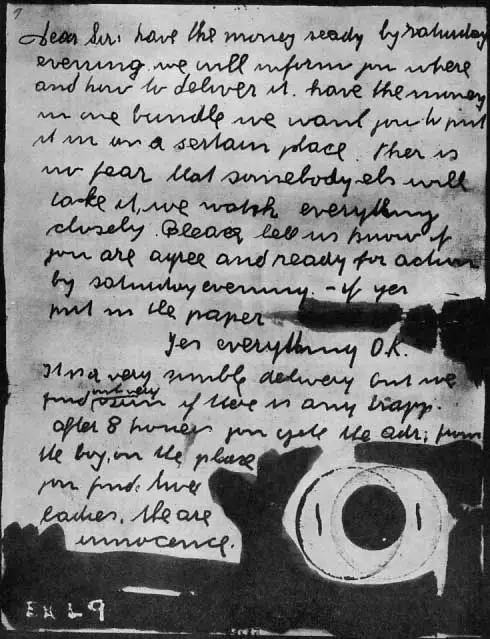 Dear Sir: have the money ready by saturday
evening. we will inform you where
and how to deliver it. have the money
in one bundle we want you to put
it in on a sertain place. Ther is
no fear that somebody els will
tacke it, we watch everything
closely. Blease lett us know if
you are agree and ready for action
by saturday evening. - if yes
put in the paper
Yes everything O.K.
It is a very simble delivery but we
find out very sun if there is any trapp.
after 8 houers you gett the adr; from
the boy, on the place
you finde two
ladies. the are
innocence.